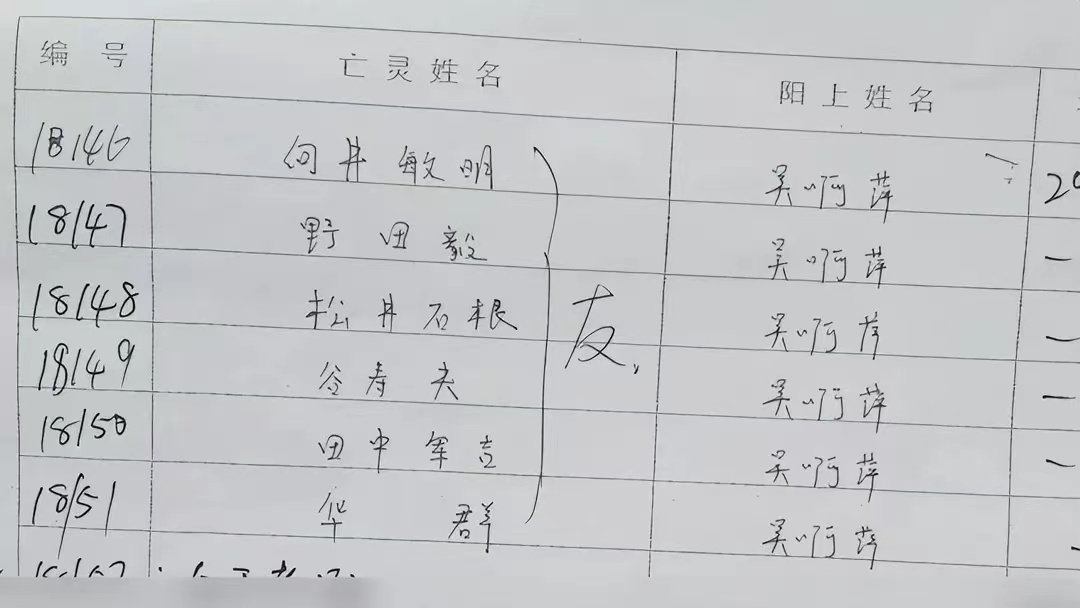 编号 亡灵姓名 阳上姓名
18146 向井敏明 吴啊萍 29
18147 野田毅 吴啊萍 一
18148 松井石根 友, 吴啊萍 一
18149 谷寿夫 吴啊萍 一
18150 田中军吉 吴啊萍 一
18151 华群 吴啊萍